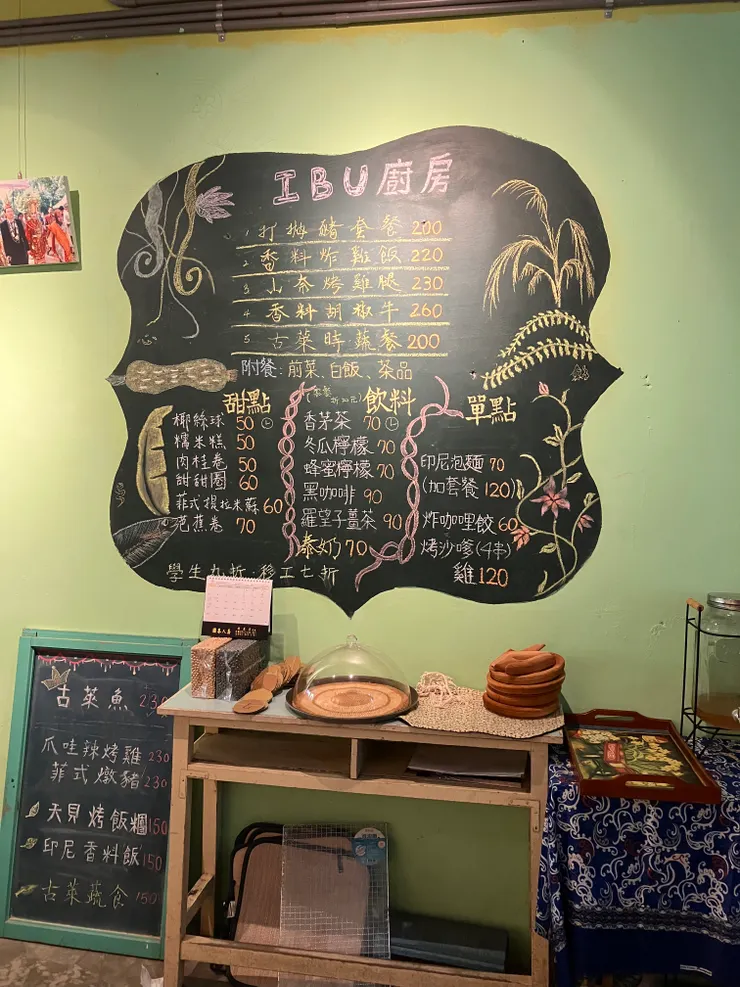 IBU廚房
1 打拋豬套餐 200
2 香料炸雞飯 220
3 山奈烤雞腿 230
4 香料胡椒牛 260
5 古菜時蔬餐 200
附餐：前菜、白飯、茶品
甜點
椰絲球 50
糯米糕 50
肉桂卷 50
甜甜圈 60
菲式提拉米蘇 60
芭蕉卷 70
飲料
香茅茶 70
冬瓜檸檬 70
蜂蜜檸檬 70
黑咖啡 90
羅望子薑茶 90
泰奶 70
單點
印尼泡麵 70
(加套餐 120)
炸咖哩餃 60
烤沙嗲(4串)
雞 120
學生九折·移工七折
古菜魚 230
爪哇辣烤雞 230
菲式燉豬 230
天貝烤飯糰 150
印尼香料飯 150
古菜蔬食 150